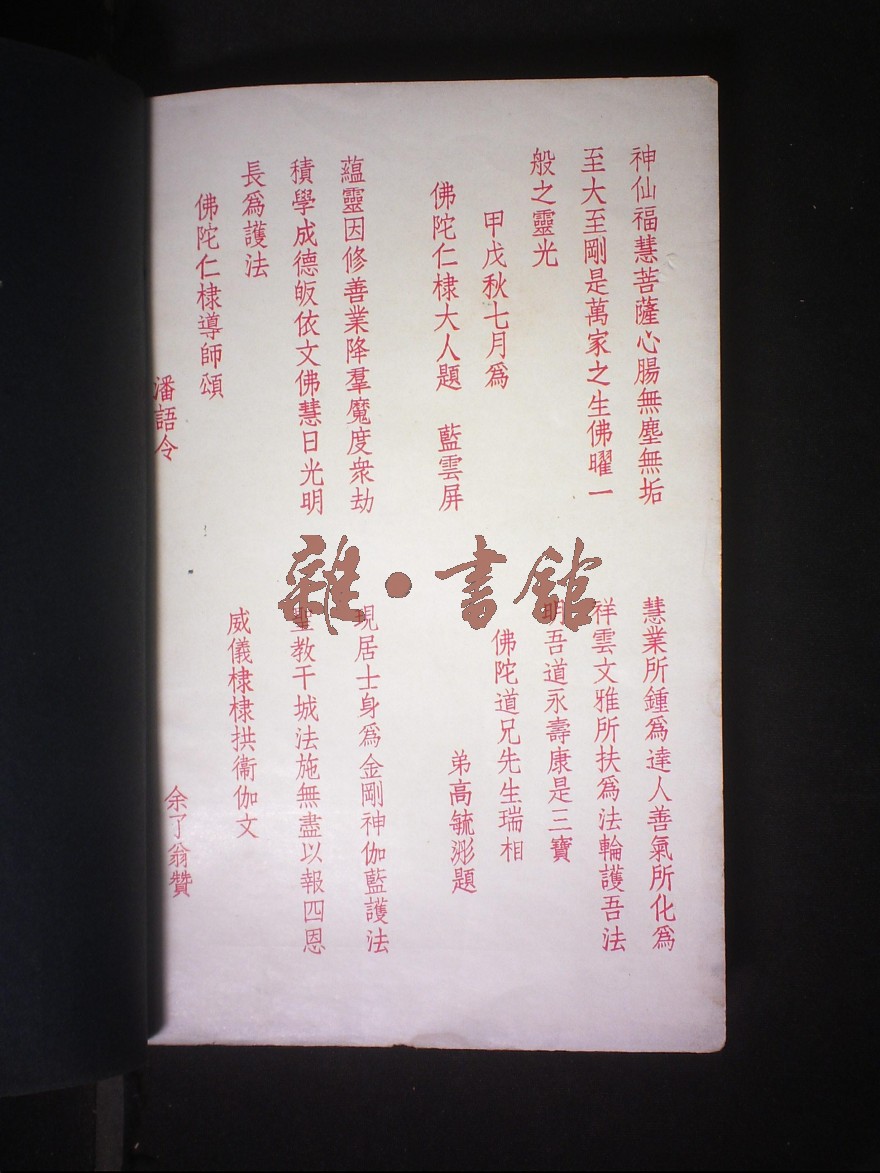 神仙福慧菩薩心腸無塵無垢
至大至剛是萬家之生佛曜一
般之靈光
甲戊秋七月爲
佛陀仁棣大人題 藍雲屏
蘊靈因修善業降羣魔度衆劫
積學成德皈依文佛慧日光明
長爲護法
佛陀仁棣導師頌
潘語令
慧業所鍾爲達人善氣所化爲
祥雲文雅所扶爲法輪護吾法
明吾道永壽康是三寶
佛陀道兄先生瑞相
弟高毓浵題
現居士身爲金剛神伽藍護法
聖教干城法施無盡以報四恩
威儀棣棣拱衞伽文
余了翁贊
雜·書館